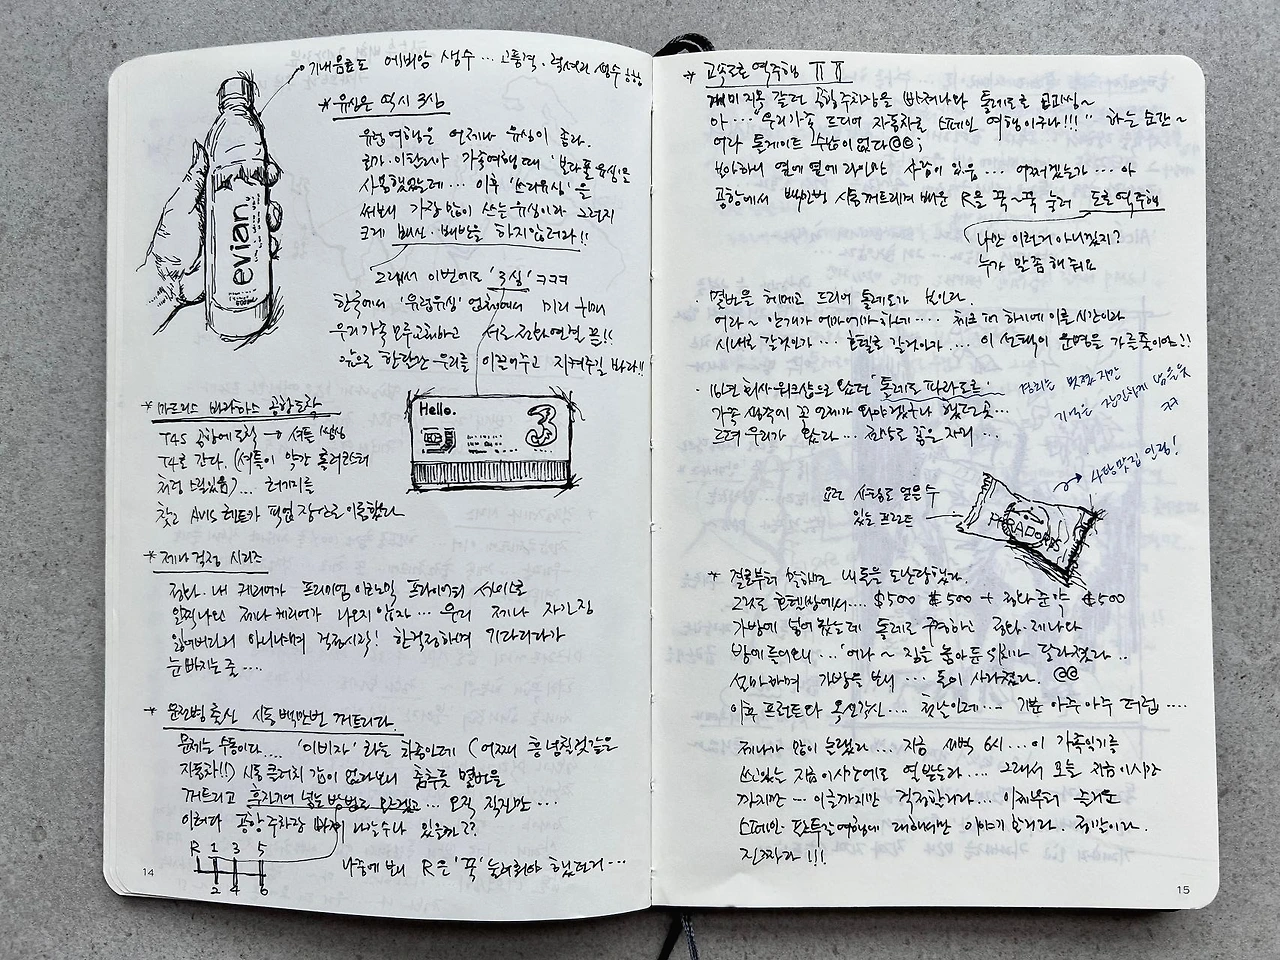 기내음료로 에비앙 생수 … 고품격. 럭셔리 생수
evian
* 유심은 역시 3심
유럽여행은 언제나 유심이 좋다.
이탈리아 가족여행 때 '보다폰 유심'을
사용했었는데… 이후 '쓰리유심'을
써보니 가장 많이 쓰는 유심이라 그런지
크게 배신·배반을 하지않더라!!
그래서 이번에도 '3심' ㅋㅋㅋ
한국에서 '유럽유심' 업체에서 미리 구매
우리가족 모두 교체하고 서로 전화연결 끝!!
앞으로 한달간 우리를 이끌어주고 지켜주길 바라!!
Hello.
3
* 마드리드 바라하스 공항도착
T4S 공항에 도착 → 셔틀 탑승
T4로 간다. (셔틀이 약간 롤러코스터
처럼 스릴있음)… 러기지를
찾고 AVIS 렌트카 픽업 장소로 이동했다
* 제나 걱정 시리즈
정다. 내 캐리어가 프리미엄 이코노미 프라이어리 서비스로
일찍나와 제나 캐리어가 나오지 않자… 우리 제나 자기짐
잃어버린거 아니냐며 걱정시작! 한걱정하며 기다리다가
눈 빠지는 줄….
* 운전병 출신 시동 백만번 꺼트리다
문제는 수동이다… '이비자' 라는 차종인데 (어쩌면 흥 넘칠것같은
자동차!!) 시동 클러치 감이 없다보니 춤추듯 몇번을
꺼트리고 후진기어 넣는 방법도 모르겠고… 오직 직진만…
이러다 공항주차장 나갈수나 있을까??
R 1 3 5
2 4 6
나중에 보니 R은 '꾹' 눌러줘야 했던거…
14
* 고속도로 역주행 ㅠㅠ
공항주차장을 빠져나와 톨레도로 고고씽~
아… "우리가족 드디어 자동차로 스페인 여행이구나!!!" 하는 순간~
어라 톨게이트 수납이 없다@@;
보아하니 옆에 옆에 라인만 사람이 있음… 어쩌겠는가… 아
공항에서 백만번 시동꺼트리며 배운 R을 꾹~꾹 눌러 도로 역주행
나만 이런거 아니겠지?
누가 말좀 해줘요
· 몇번을 헤메고 드디어 톨레도가 보인다.
어라~ 안개가 어마어마하게…. 체크인 하기에 이른 시간이라
시내로 갈것인가… 호텔로 갈것인가…. 이 선택이 운명을 가를줄이야!!
· 16년 회사워크샵으로 왔던 '톨레도 파라도르'
가족 생각에 꼭 언젠가 와야겠구나 했던 곳…
드뎌 우리가 왔다… 환상로 꼽은 자리…
경치는 멋졌지만
기억은 잔인하게 남을듯
ㅋㅋ
요런 사탕도 얻을 수
있는 프론트
→ 사탕맛집 인정!
PARADORES
* 결론부터 말하면 내 돈을 도난당했다.
그것도 호텔방에서…. $500 $500 + 정다 준 약 $500
가방에 넣어 놨는데 톨레도 구경하고 정다. 제나랑
방에 들어오니… '어라~ 짐을 놓아둔 위치가 달라졌다..
설마하며 가방을 보니… 돈이 사라졌다. @@
이후 프런트와 옥신각신…. 첫날인데… 기분 아주 아주 더럽….
제나가 많이 놀랬다…. 지금 새벽 6시… 이 가족일기를
쓰고있는 지금 이시간에도 열받는다…. 그래서 오늘 지금 이시간
까지만… 이글까지만 걱정할거다…. 이제부터 즐거운
스페인·포루투갈여행에 대해서만 이야기할거다. 제발이다.
진짜다!!!
15